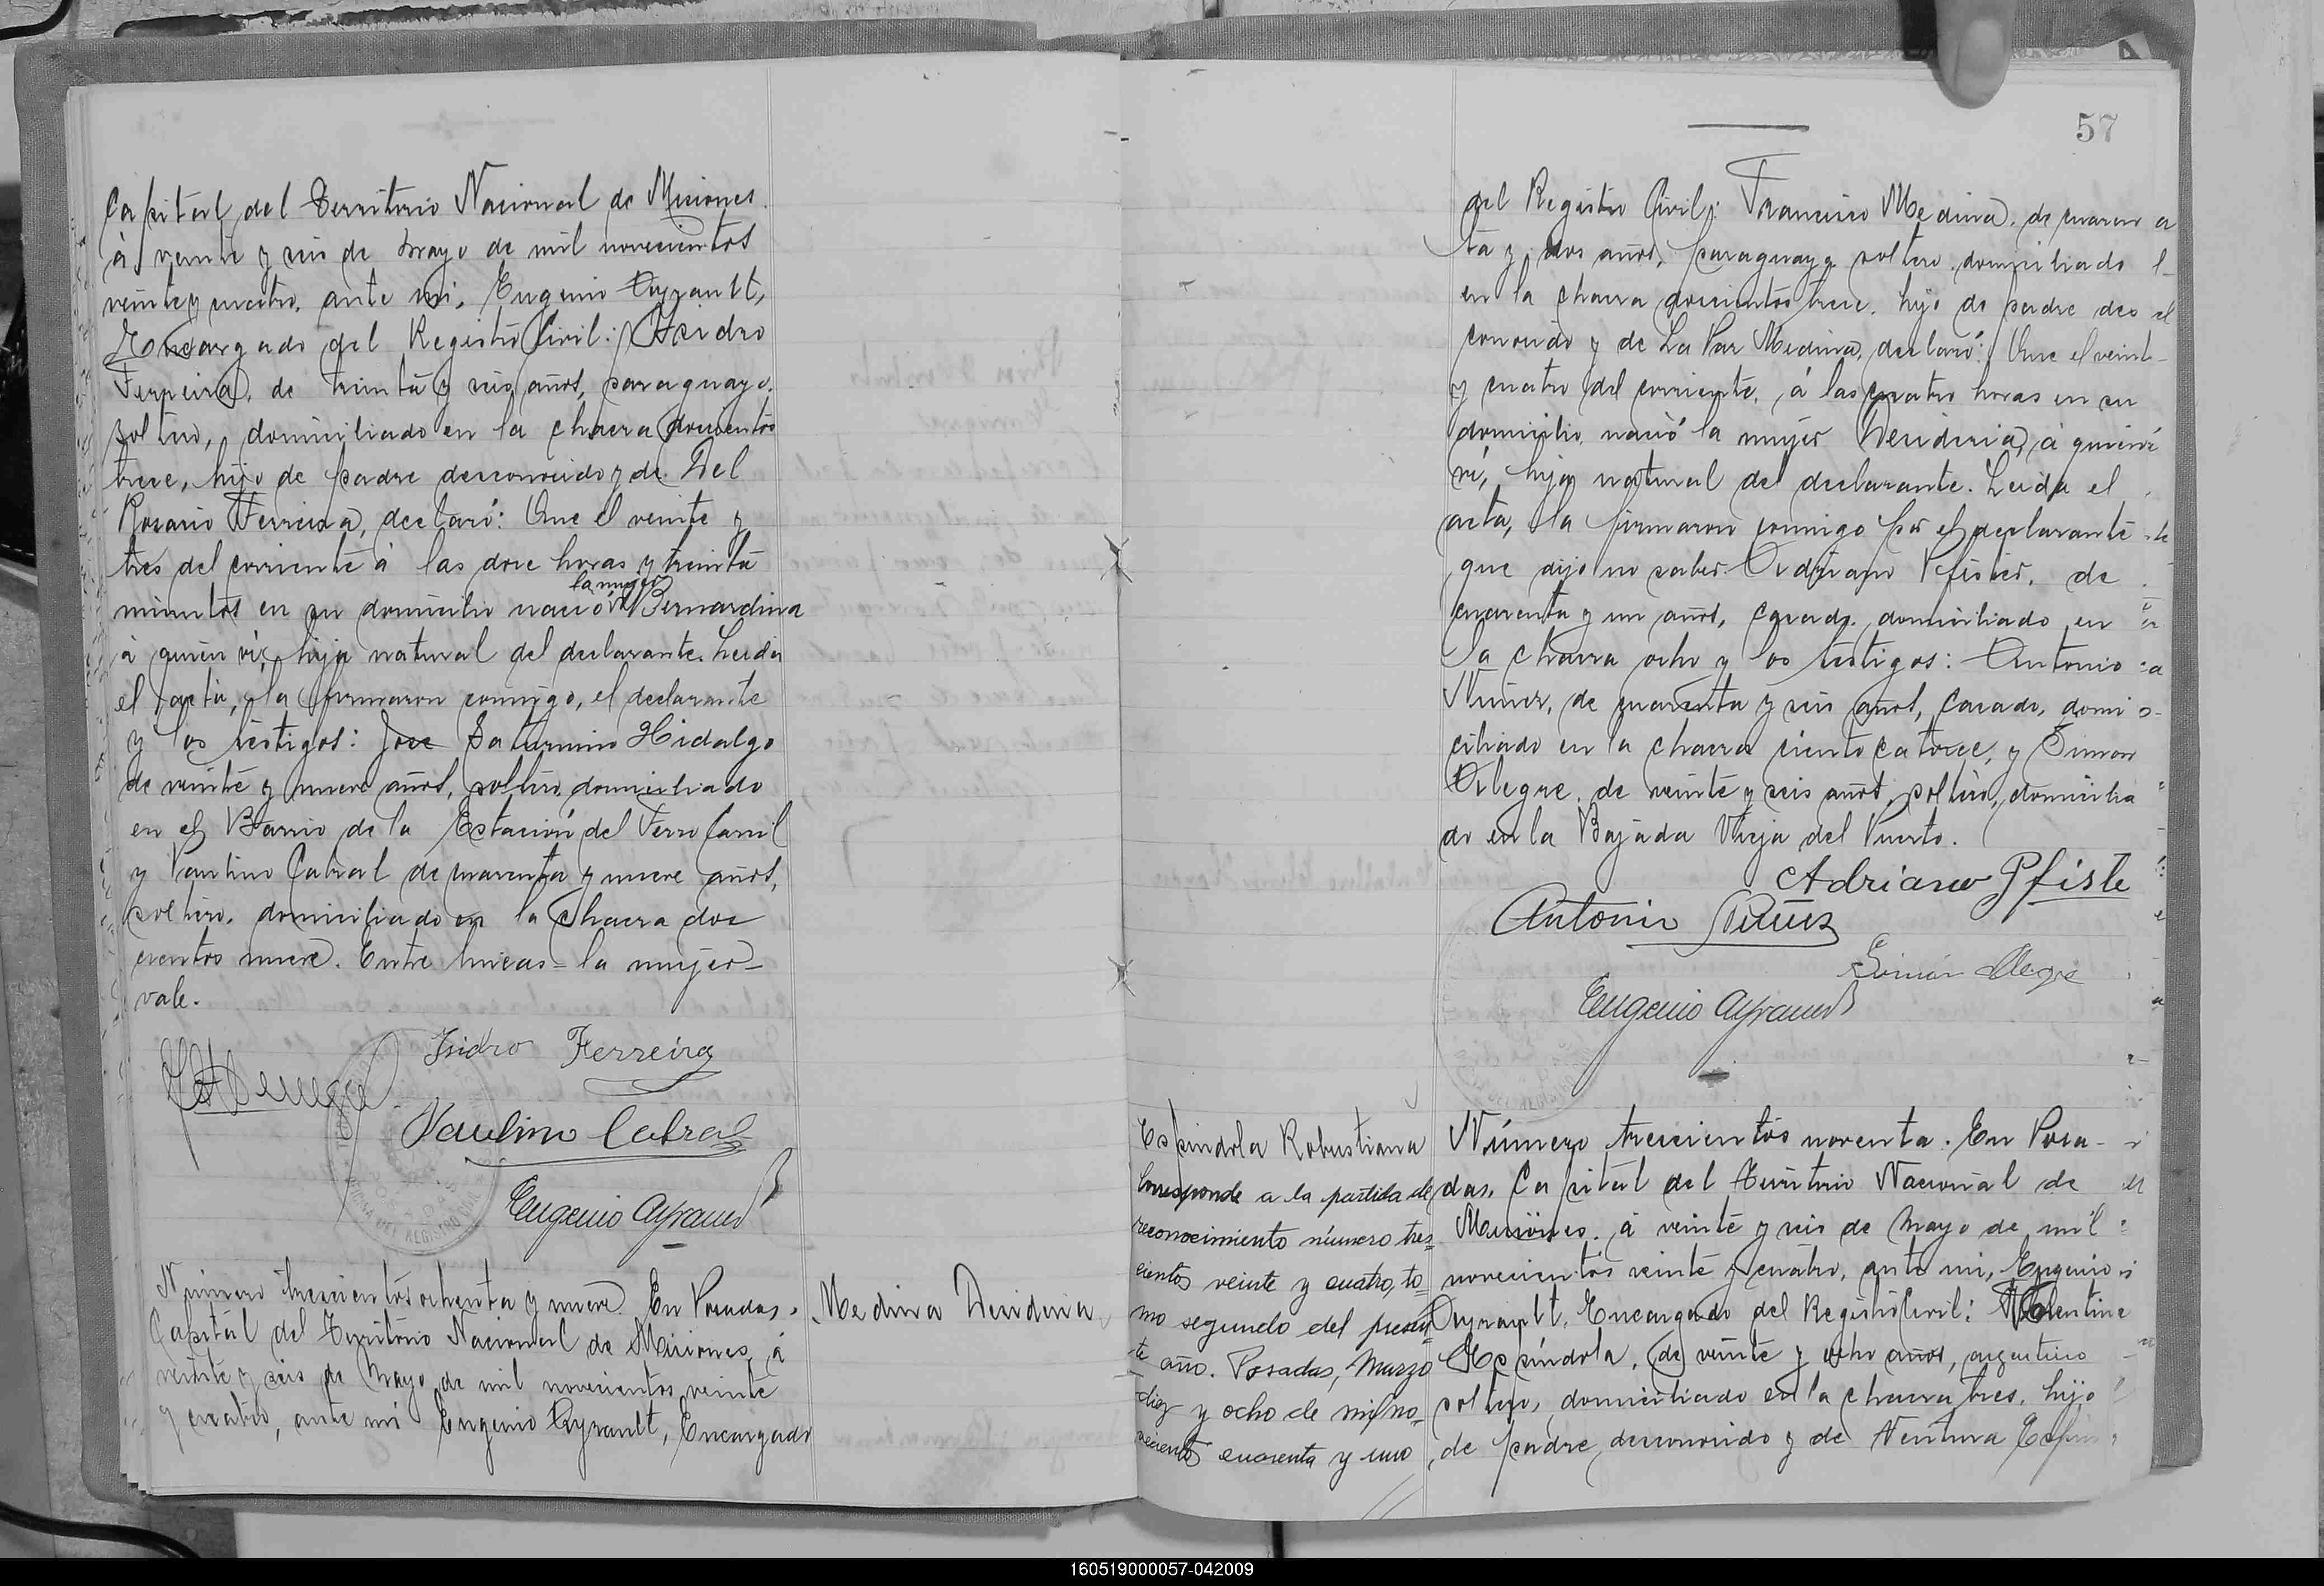 Capital del Territorio Nacional de Misiones.
á veinte y seis de Mayo de mil novecientos
veinte y cuatro, ante mi, Eugenio Ayrault,
Encargado del Registro Civil: Isidro
Ferreira, de treinta y seis años, paraguayo,
soltero, domiciliado en la chacra doscientos
trece, hijo de padre desconocido y de Del
Rosario Ferreira, declaró: Que el veinte y
tres del corriente á las doce horas y treinta
la mujer
minutos en su domicilio nació Bernardina
á quien ví, hija natural del declarante. Leida
el acta, la firmaron conmigo, el declarante
y los testigos: Jose Saturnino Hidalgo
de veinte y nueve años, soltero, domiciliado
en el Barrio de la Estación del Ferro Carril
y Paulino Cabral de cuarenta y nueve años,
soltero, domiciliado en la chacra dos
cientos nueve. Entre lineas = la mujer =
vale.
Isidro Ferreira
Paulino Cabral
Eugenio Ayrault
Número trescientos ochenta y nueve. En Posadas,
Capital del Territorio Nacional de Misiones, á
veinte y seis de Mayo de mil novecientos veinte
y cuatro, ante mi Eugenio Ayrault, Encargado
Medina Desideria
57
del Registro Civil: Francisco Medina, de cuaren
ta y dos años, paraguayo soltero, domiciliado
en la chacra doscientos trece, hijo de padre des
conocido y de La Paz Medina, declaró: Que el veinte
y cuatro del corriente, á las cuatro horas en su
domicilio, nació la mujer Desideria, á quien
ví, hija natural del declarante. Leida el
acta, la firmaron conmigo por el declarante
que dijo no saber Adriano Pfister, de
cuarenta y un años, casado, domiciliado en
la chacra ocho y los testigos: Antonio
Nuñez, de cuarenta y seis años, casado, domi
ciliado en la chacra ciento catorce, y Simon
Alegre, de veinte y seis años, soltero, domicilia
do en la Bajada Vieja del Puerto.
Adriano Pfiste
Antonio Nuñez
Simón Alegre
Eugenio Ayrault
Espindola Robustiana
Corresponde a la partida de
reconocimiento número tres
cientos veinte y cuatro, to
mo segundo del presen
te año. Posadas, Marzo
diez y ocho de mil no
vecientos cuarenta y uno
Número trescientos noventa. En Posa-
das, Capital del Territorio Nacional de
Misiones, á veinte y seis de Mayo de mil
novecientos veinte y cuatro, ante mi, Eugenio
Ayrault, Encargado del Registro Civil: Valentine
Espíndola, de veinte y ocho años, argentino
soltero, domiciliado en la chacra tres, hijo
de padre desconocido y de Ventura Espin
160519000057-042009